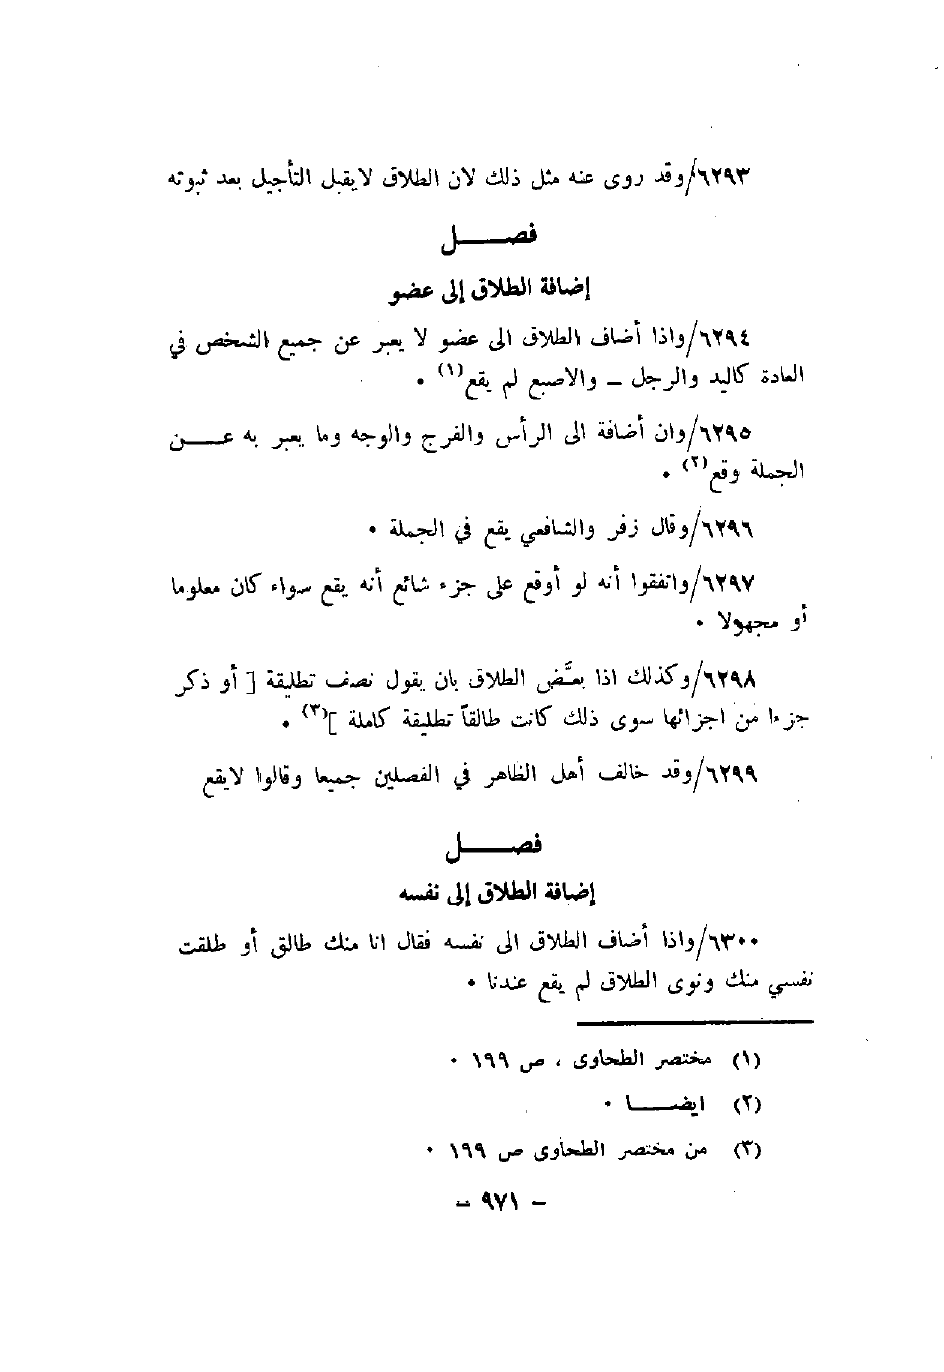 ٦٢٩٣/وقد روى عنه مثل ذلك لان الطلاق لايقبل التأجيل بعد ثبوته
فصـــل
إضافة الطلاق إلى عضو
٦٢٩٤/واذا أضاف الطلاق الى عضو لا يعبر عن جميع الشخص في
العادة كاليد والرجل ــ والاصبع لم يقع(١) ٠
٦٢٩٥/وان أضافة الى الرأس والفرج والوجه وما يعبر به عـــن
الجملة وقع(٢) ٠
٦٢٩٦/وقال زفر والشافعي يقع في الجملة ٠
٦٢٩٧/واتفقوا أنه لو أوقع على جزء شائع أنه يقع سواء كان معلوما
أو مجهولا ٠
٦٢٩٨/وكذلك اذا بعَّض الطلاق بان يقول نصف تطليقة [ أو ذكر
جزءا من اجزائها سوى ذلك كانت طالقاً تطليقة كاملة ](٣) ٠
٦٢٩٩/وقد خالف أهل الظاهر في الفصلين جميعا وقالوا لايقع
فصـــل
إضافة الطلاق إلى نفسه
٦٣٠٠/واذا أضاف الطلاق الى نفسه فقال انا منك طالق أو طلقت
نفسي منك ونوى الطلاق لم يقع عندنا ٠
(١) مختصر الطحاوى ، ص ١٩٩ ٠
(٢) ايضـــا ٠
(٣) من مختصر الطحاوى ص ١٩٩ ٠
– ٩٧١ –